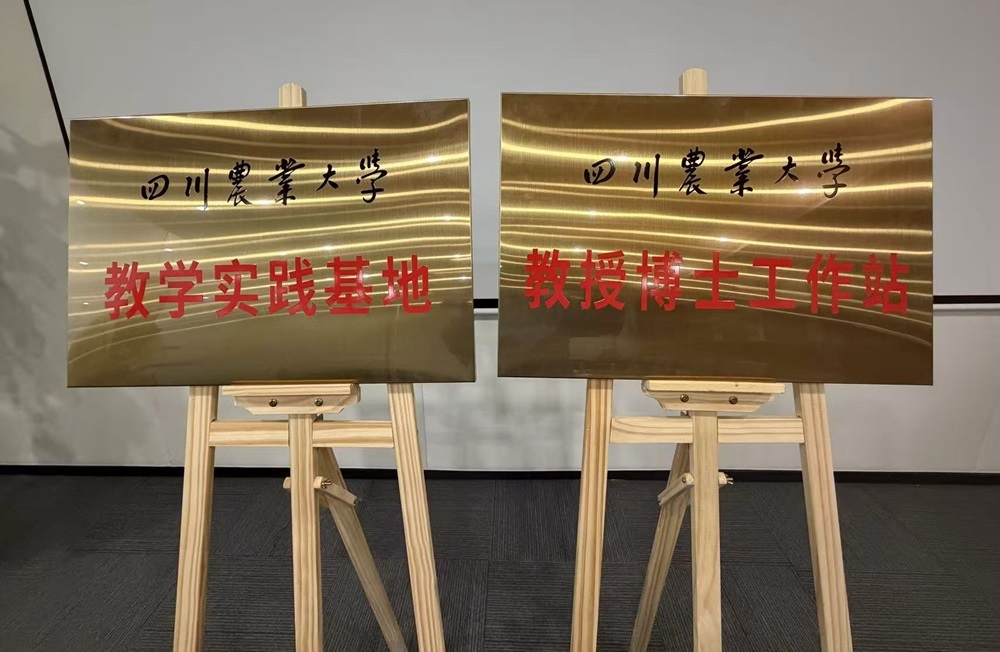 四川農業大學
教学实践基地
四川農業大學
教授博士工作站